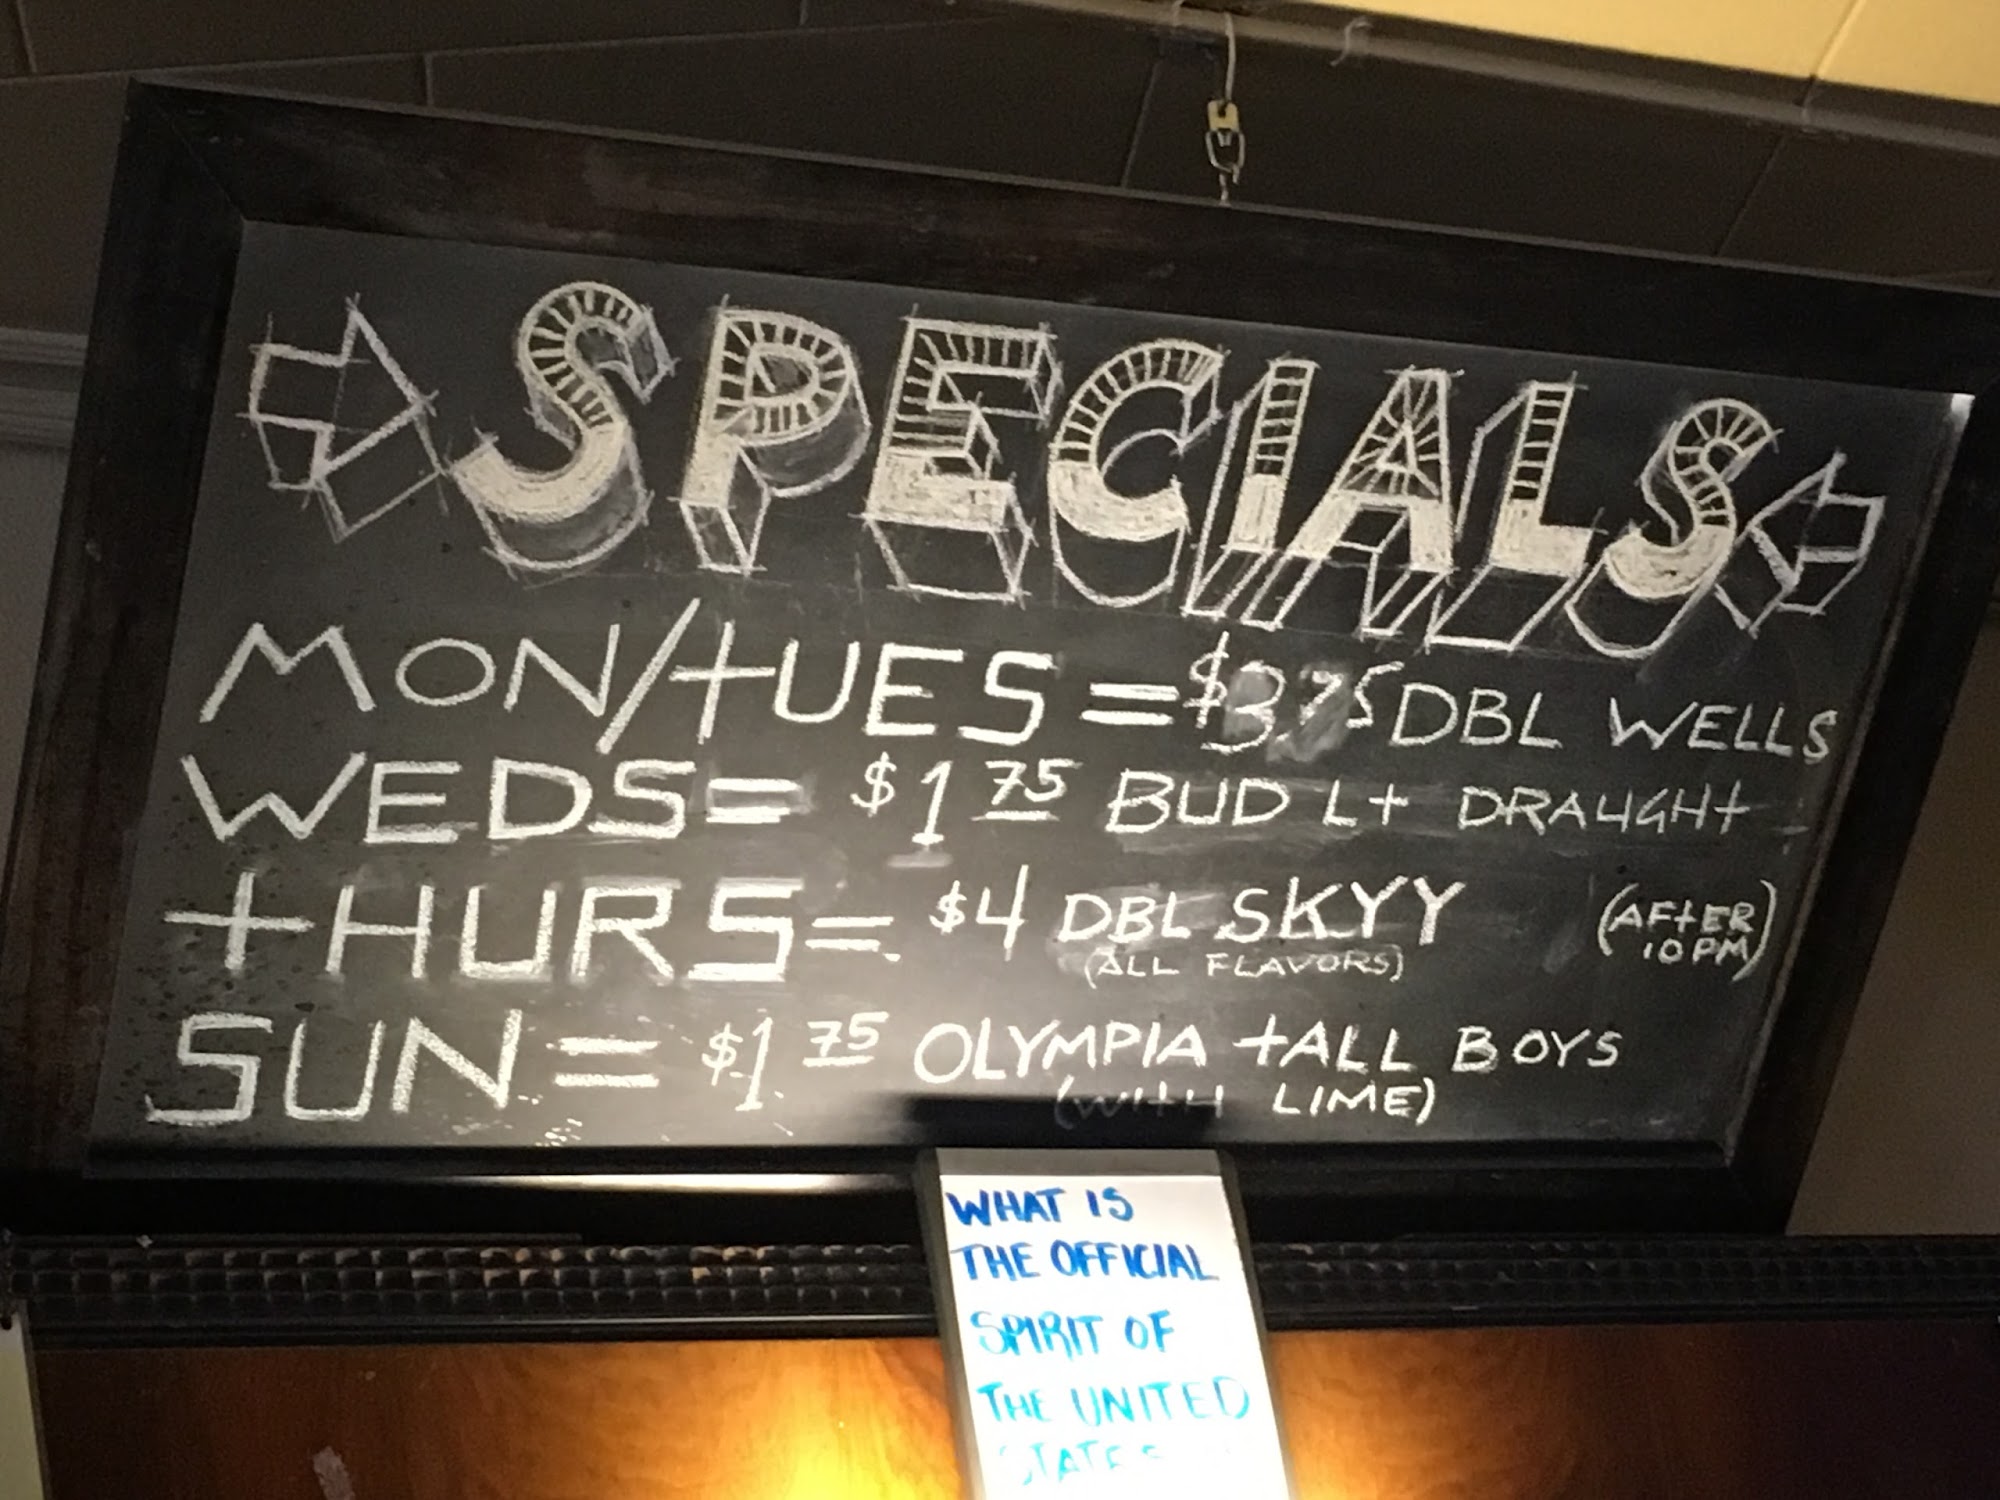 SPECIALS
MON/TUES = $3.75 DBL WELLS
WEDS = $1 75 BUD Lt DRAUGHT
THURS = $4 DBL SKYY (AFTER
(ALL FLAVORS) 10PM)
SUN = $1 75 OLYMPIA TALL BOYS
(WITH LIME)
WHAT IS
THE OFFICIAL
SPIRIT OF
THE UNITED
STATES